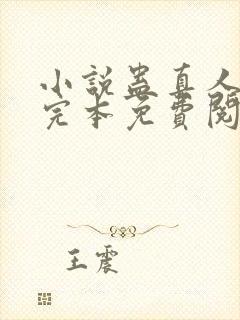 小說蠱真人
完本免費閱
王震